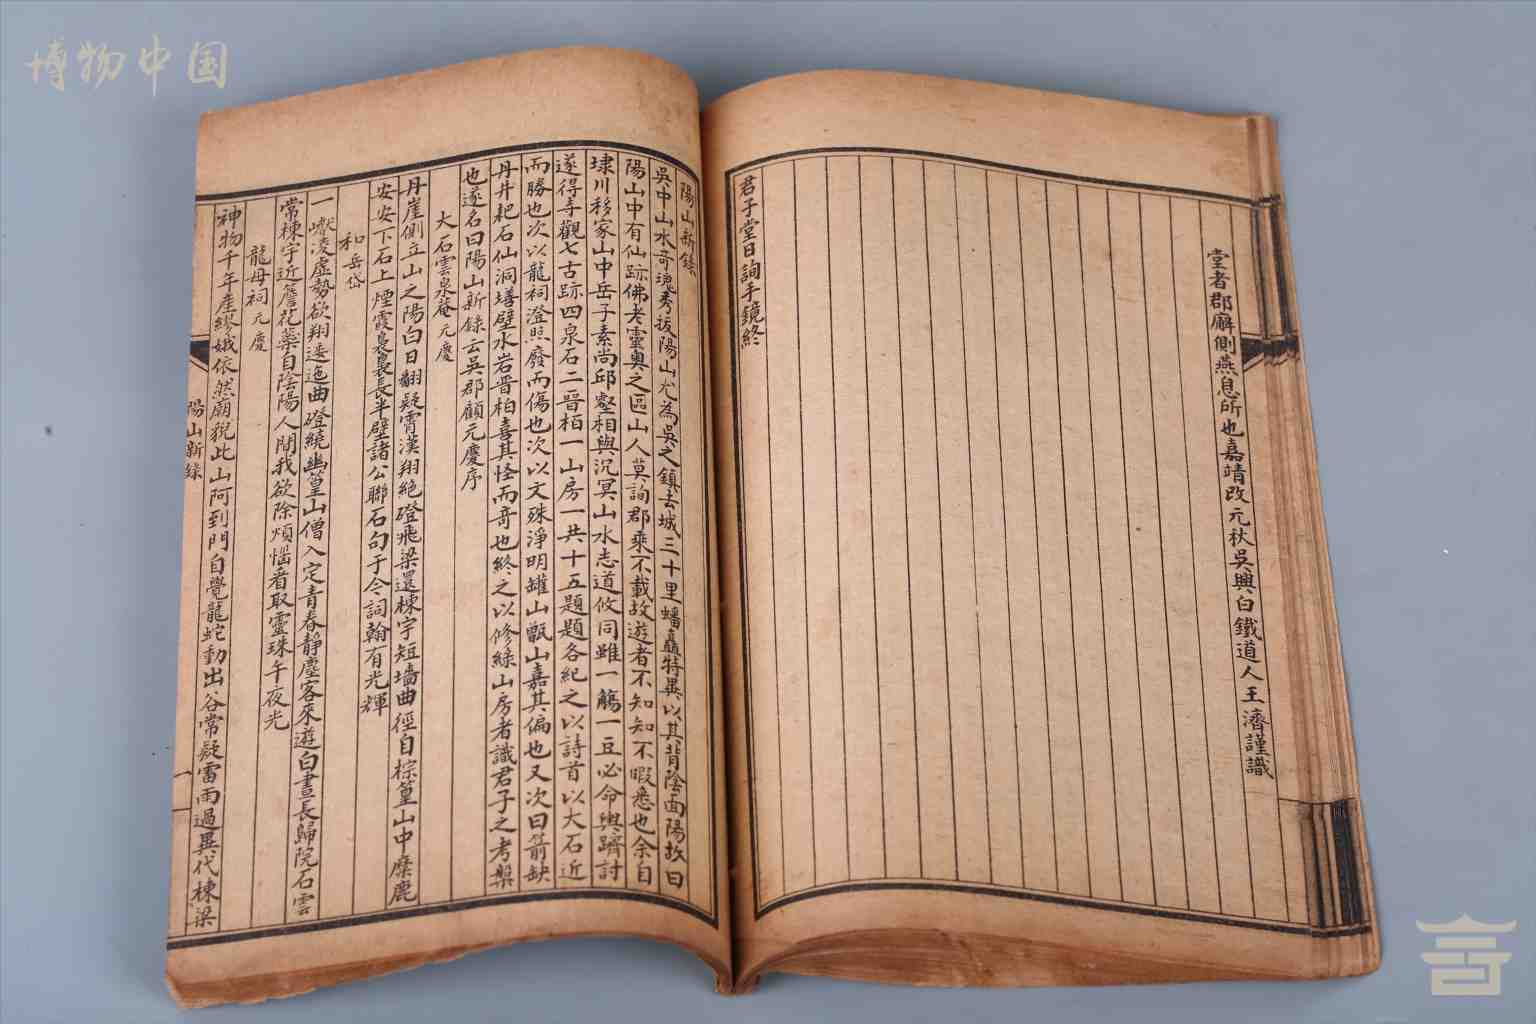 博物中国
堂者郡廨側燕息所也嘉靖改元秋吳興白鐵道人王濟謹識
君子堂日詢手鏡終
陽山新錄
吳中山水奇瑰秀拔陽山尤為吳之鎮去城三十里蟠矗特異以其背陰面陽故曰
陽山中有仙跡佛老靈奧之區山人莫詢郡乘不載故遊者不知知不暇悉也余自
埭川移家山中岳子素尚邱壑相與沉冥山水志道攸同雖一觴一豆必命與躋討
遂得寺觀七古跡四泉石二晉柏一山房一共十五題題各紀之以詩首以大石近
而勝也次以龍祠澄照廢而傷也次以文殊淨明罐山甑山嘉其偏也又次曰箭缺
丹井耙石仙洞墡壁水岩晉柏喜其怪而奇也終之以修綠山房者識君子之考槃
也遂名曰陽山新錄云吳郡顧元慶序
大石雲泉菴元慶
丹崖側立山之陽白日翻疑霄漢翔絕磴飛梁還棟宇短墻曲徑自棕篁山中麋鹿
安安下石上煙霞裊裊長半壁諸公聯石句于今詞翰有光輝
和岳岱
一巘凌虛勢欲翔逶迤曲磴繞幽篁山僧入定青春靜塵客來遊白晝長歸院石雲
常棟宇近簷花藥自陰陽人閒我欲除煩惱看取靈珠午夜光
龍母祠元慶
神物千年產繆娥依然廟貌此山阿到門自覺龍蛇動出谷常疑雷雨過異代棟梁
陽山新錄
一